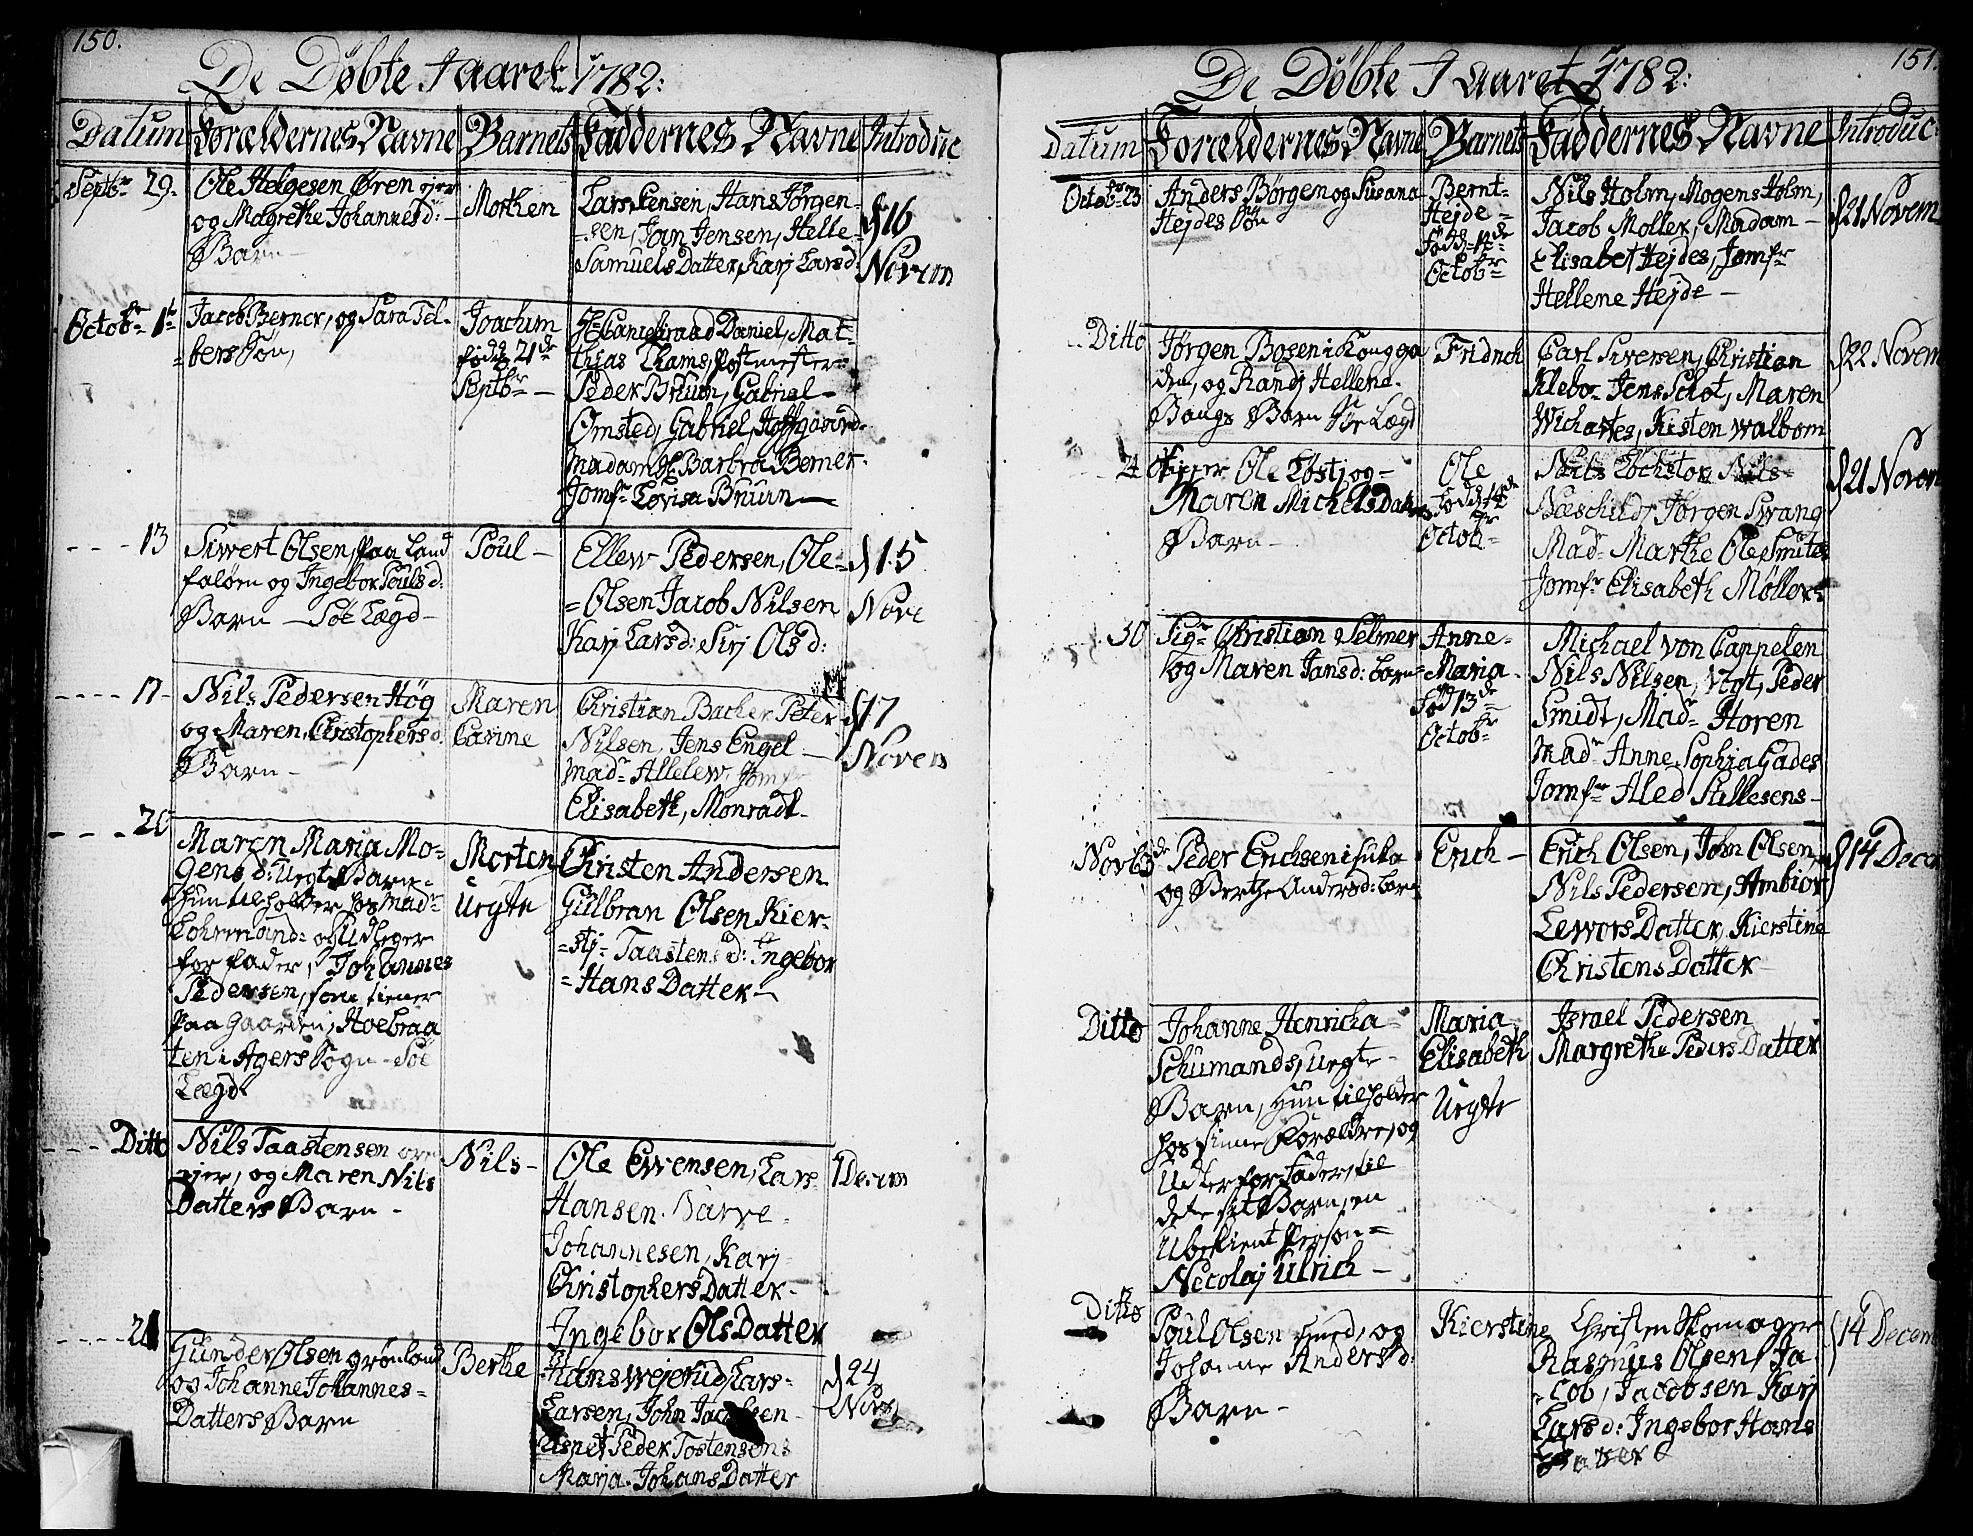 150.
De Døbte I aaret 1782:
Datum Forældernes Navne Barnets Faddernes Navne Introduc
Septbr 29. Ole Helgesen Øren
og Magrethe Johannesd:
Barn
Morthen
Lars Jensen, Hans Jørgen-
sen, Jan Jensen, Helle
Samuels Datter, Karj Larsd:
16
Novem
Octobr 1te Jacob Berner, og Sara Tel-
bers Søn,
Joachim
født 21de
Septbr
Hr Cancelraad Daniel, Mat-
thias Thams, Postmester
Peder Bruun, Gabriel
Omsted, Gabriel, Hoffgaard
Madam Hr Barbra Berner
Jomfr Lovisa Bruun
13 Siwert Olsen, paa Land
faløen og Ingebor Poulsd:
Barn Søe Lægd
Poul
Ellew Pedersen, Ole
Olsen Jacob Nilsen
Karj Larsd: Sirj Olsd:
15
Nove
17 Nils Pedersen Høg
og Maren Christophersd:
Barn
Maren
Carine
Christian Bacher Peter
Nilsen, Jens Engel
Madr Allelew, Jomfr
Elisabeth, Monradt
17
Novem
20 Maren Maria Mo-
gensd: Urgt Barn
hun tilholder hos Madr
Lohrmand: og Udleger
for fader, Johannes
Pedersen, som tiener
paa Gaarden, Hoebraa
ten i Agers Sogn Søe
Lægd
Morten
Uegte
Christen Andersen
Gulbran Olsen Kier-
stj Taastensd: Ingebor
Hans Datter
Ditto Nils Taastensen øre
ejer, og Maren Nils
Datters Barn
Nils
Ole Ewensen, Lars
Hansen
Johannesen, Karj
Christophers Datter
Ingebor Ols Datter
1 Decem
21 Gunder Olsen grønland
og Johanne Johannes-
Datters Barn
Berthe
Hans Wejerud, Lars-
Larsen, John Jacobsen
Peder Tostensen
Marja Johans Datter
24
Nov
151.
De Døbte I Aaret 1782:
Datum Forældernes Navne Barnets Faddernes Navne Introduc:
Octobr 23 Anders Børgen og Susana
Hejdes Søn
Bernt
Hejde
Født 4de
Octobr
Nils Holm, Mogens Holm,
Jacob Moller, Madam
Elisabet Hejdes, Jomfr
Hellene Hejde
21 Novem
Ditto Jørgen Bosen i Kongga
den, og Randj Hellene
Bangs Barn Søe Lægd
Fridrich
Carl Siwersen, Christian
Klebo Jens Schot, Maren
Wichastes, Kisten Walbom
22 Novem
24 Skipper Ole Løstj og
Maren Michels Datters
Barn
Ole
Født 14de
Octobr
Nils Lochstor Nils
Næschild, Jørgen Swang
Madr Marthe Ole Smites
Jomfr Elisabeth Møllers
21 Novem
30 Sigr Christian Selmer
og Maren Jansd: barn
Anne
Maria
Fød 13de
Octobr
Michael von Cappelen
Nils Nilsen, Vogt, Peder
Smidt, Madr Horen
Madr Anne Sophia Gades
Jomfr Aled Stillesens
Novb 3de Peder Erichsen i
og Berthe Andersd: barn
Erich
Erich Olsen, John Olsen,
Nils Pedersen, Ambior
Lewors Datter, Kierstine
Christens Datter
14 Decem
Ditto Johanne Henricha
Schumands, Uegte
Barn, hun tilholder
hos sinne Forældre, og
Udler for Fader, til
dete sit Barn, en
Ubekient Person
Necolaj Ulrich
Maria
Elisabeth
Uegte
Israel Pedersen
Margrethe Peders Datter
Ditto Poul Olsen Smed, og
Johanne Andersd:
Barn
Kierstine
Christen Skomager
Rasmus Olsen, Ja-
cob, Jacobsen Karj
Larsd: Ingebor Hans
Datter
14 Decem